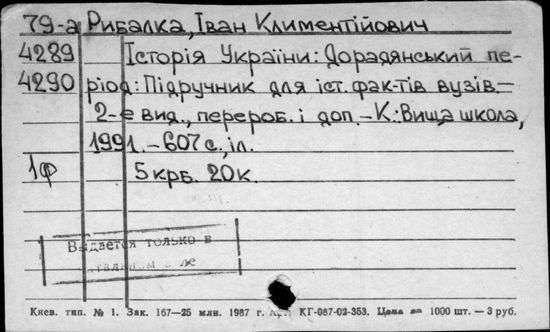 79-а Рибалка, Іван Климентійович
4289 Історія України: Дорадянський пе-
4290 ріод: Підручник для іст. фак-тів вузів.–
2-е вид., перероб. і доп. – К.: Вища школа,
1991. – 607 с., іл.
1ф 5 крб. 20 к.
Выдается только в
Киев. тип. № 1. Зак. 167—25 млн. 1987 г. КГ-087-02-353. Цена за 1000 шт. — 3 руб.